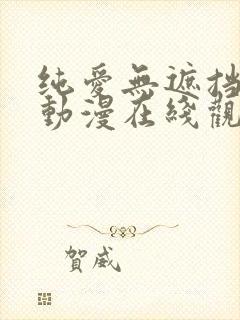 純愛無遮挡
動漫在綫觀
賀威